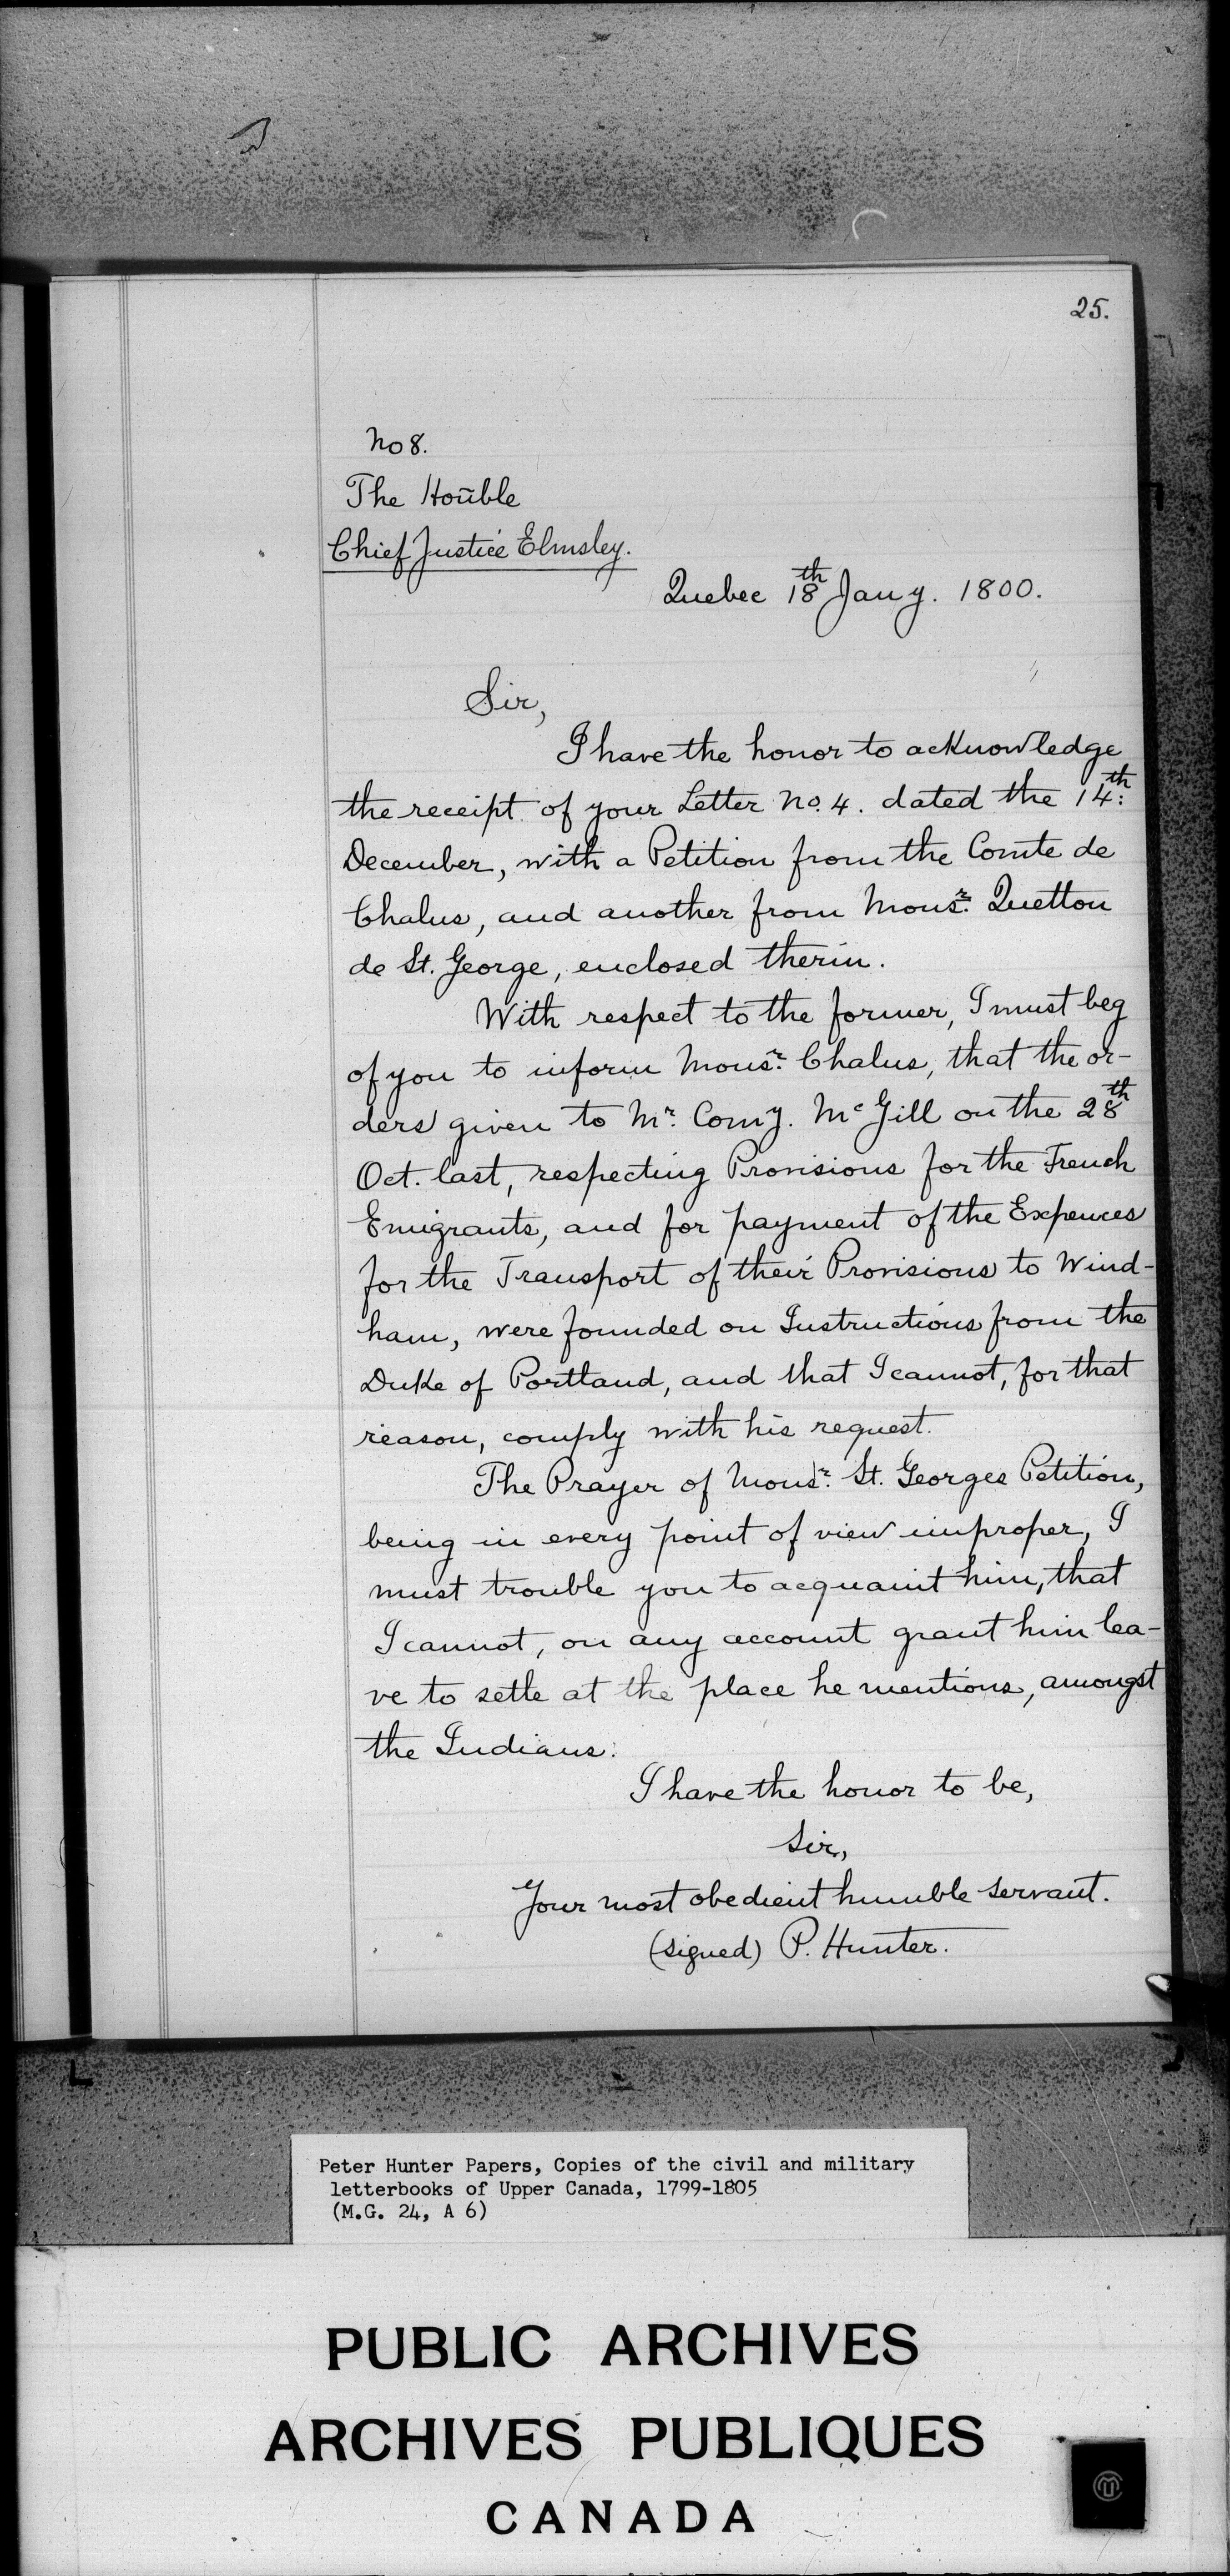 25.
No 8.
The Hoūble
Chief Justice Elmsley.
Quebec 18th Jany. 1800.
Sir,
I have the honor to acknowledge
the receipt of your Letter No. 4. dated the 14th:
December, with a Petition from the Comte de
Chalus, and another from Monsr. Quetton
de St. George, enclosed therin.
With respect to the former, I must beg
of you to inform Monsr. Chalus, that the or-
ders given to Mr. Comy. McGill on the 28th
Oct. last, respecting Provisions for the French
Emigrants, and for payment of the Expences
for the Transport of their Provisions to Wind-
ham, were founded on Instructions from the
Duke of Portland, and that I cannot, for that
reason, comply with his request.
The Prayer of Monsr. St. Georges Petition,
being in every point of view improper, I
must trouble you to acquaint him, that
I cannot, on any account grant him lea-
ve to settle at the place he mentions, amongst
the Indians.
I have the honor to be,
Sir,
Your most obedient humble servant.
(signed) P. Hunter.
Peter Hunter Papers, Copies of the civil and military
letterbooks of Upper Canada, 1799-1805
(M.G. 24, A 6)
PUBLIC ARCHIVES
ARCHIVES PUBLIQUES
CANADA